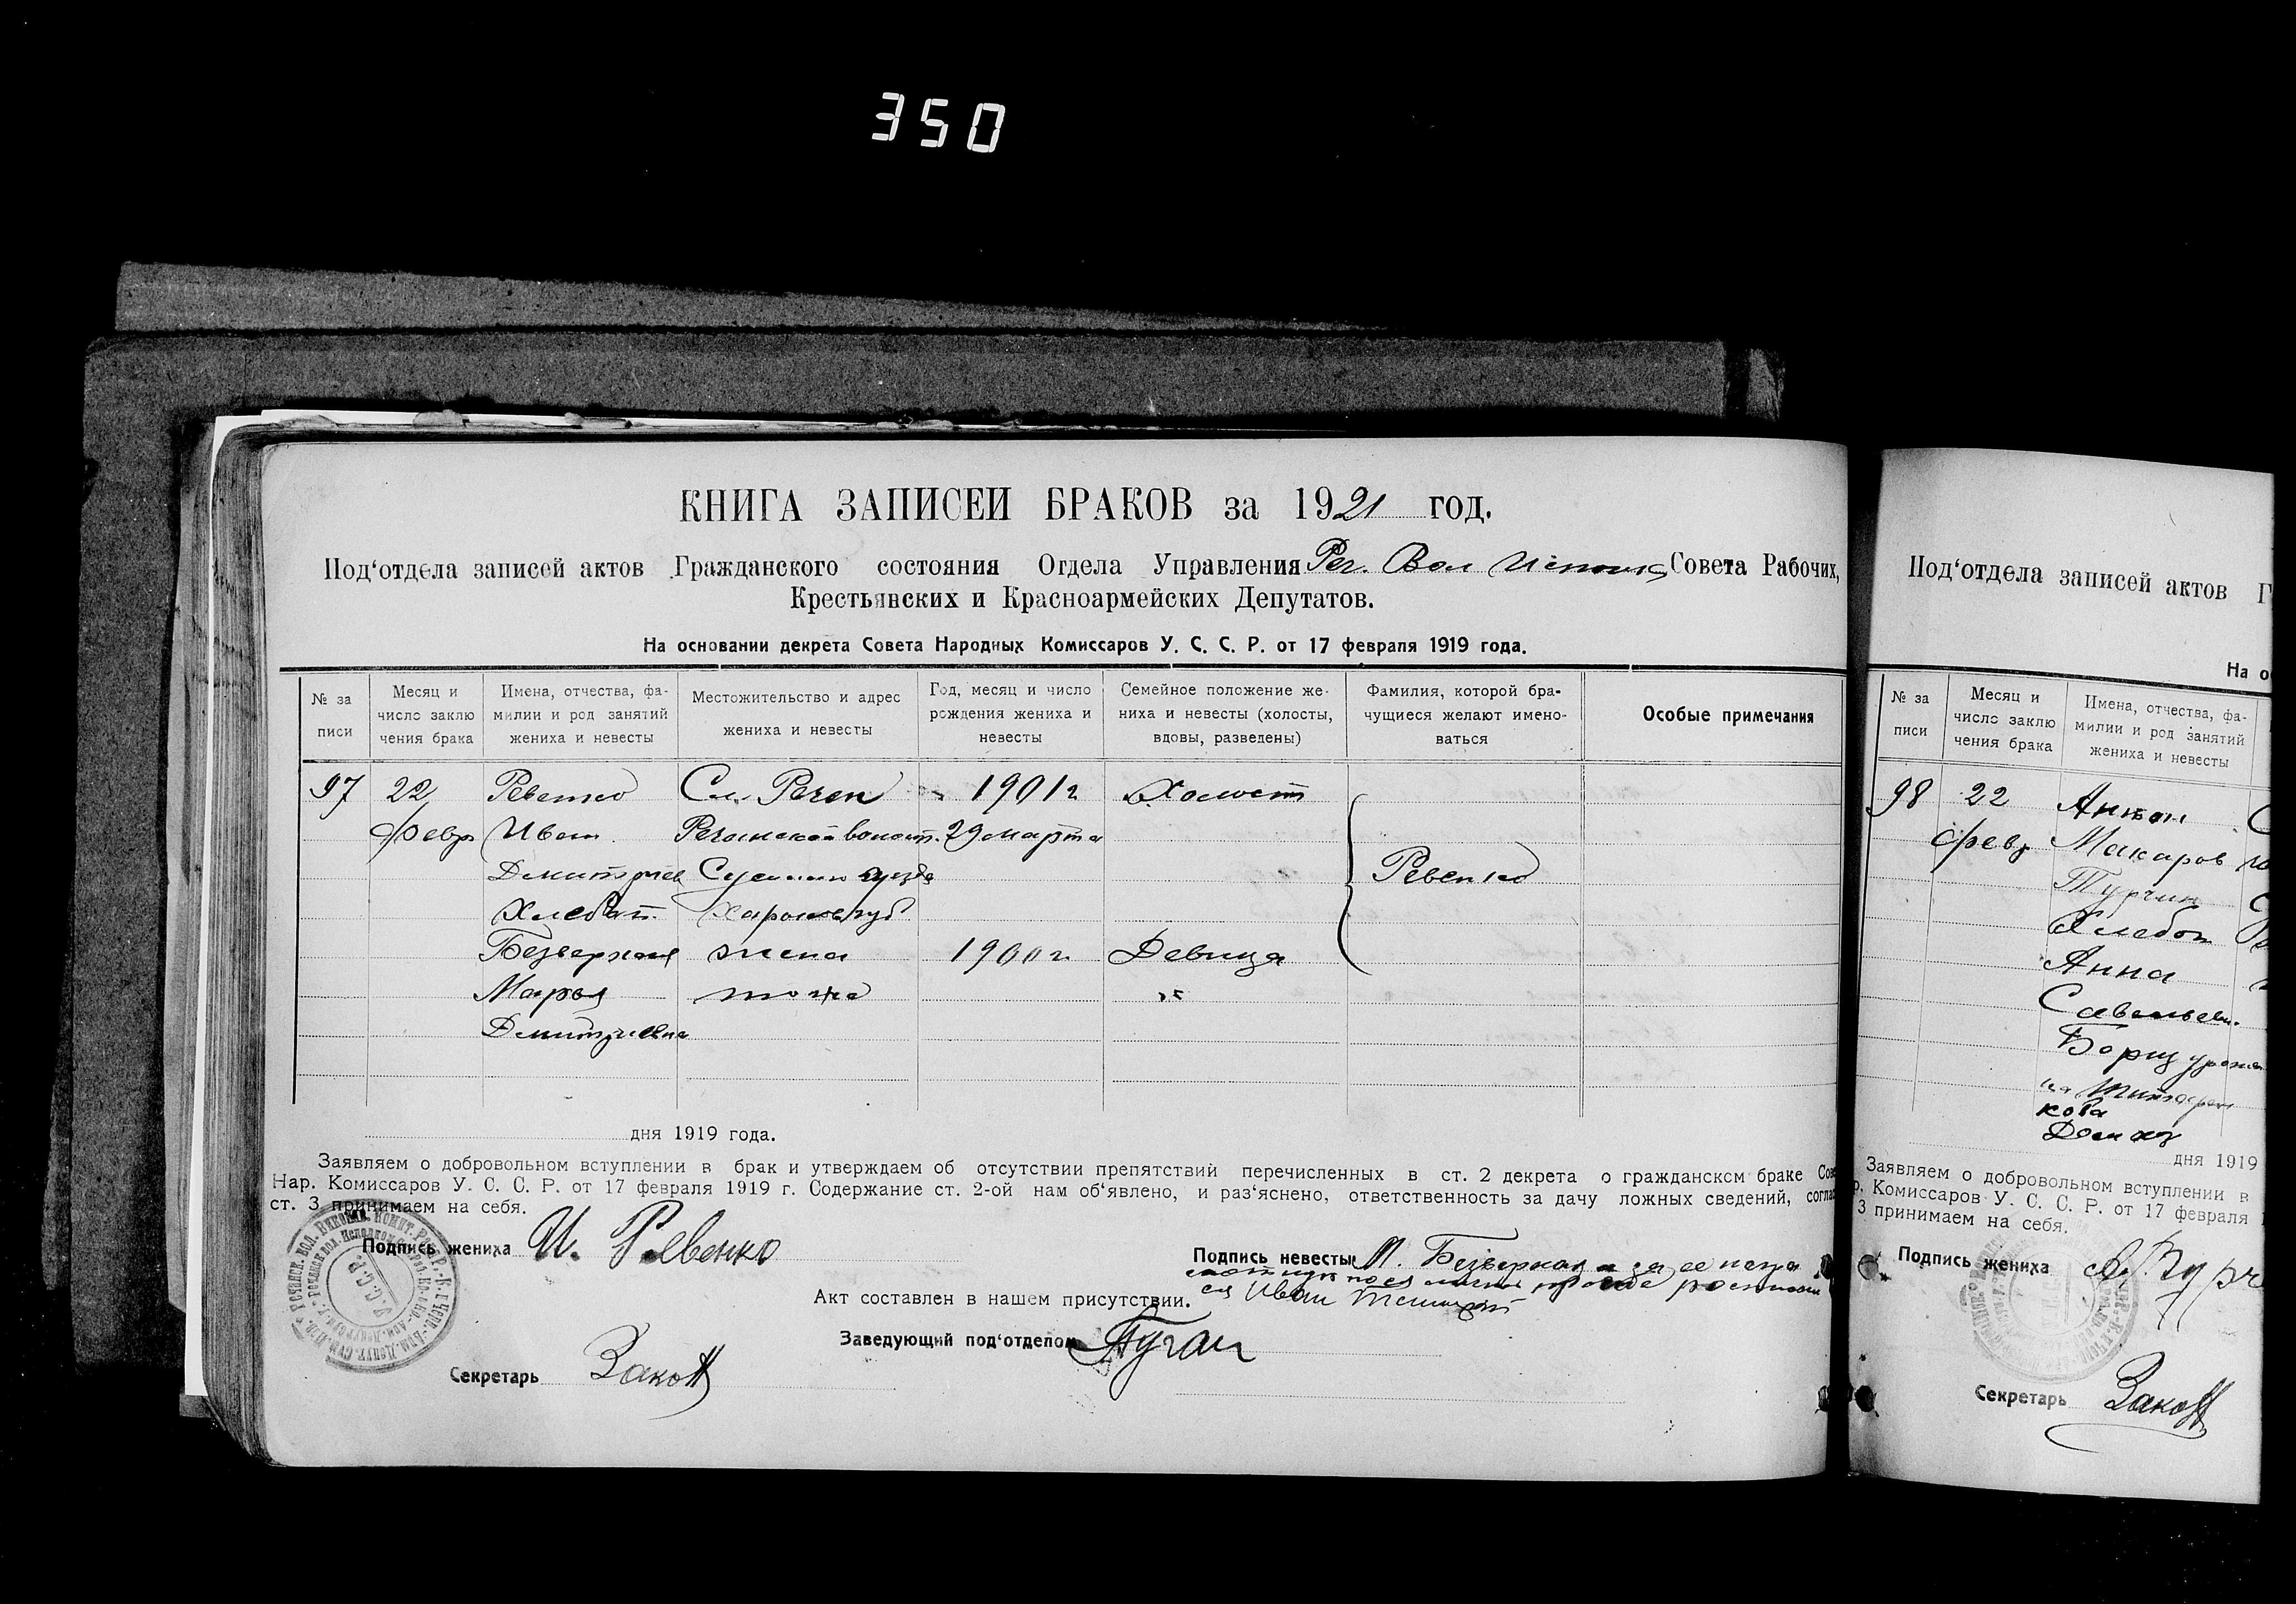 350
КНИГА ЗАПИСЕЙ БРАКОВ за 1921 год.
Под‘отдела записей актов Гражданского состояния Отдела Управления Реч. Вол Исполк Совета Рабочих,
Крестьянских и Красноармейских Депутатов.
На основании декрета Совета Народных Комиссаров У. С. С. Р. от 17 февраля 1919 года.
№ за писи
Месяц и число заклю чения брака
Имена, отчества, фа- милии и род занятий жениха и невесты
Местожительство и адрес жениха и невесты
Год, месяц и число рождения жениха и невесты
Семейное положение же- ниха и невесты (холосты, вдовы, разведены)
Фамилия, которой бра- чущиеся желают имено- ваться
Особые примечания
97 22 Ревенко Сл. Речек 1901 г Холост
февр Иван Речанской волост. 29 марта
Дмитриев Сумского уезда Ревенко
Хлебоп. Харьков губ
Безверхая жена 1900 г. Девица
Марья тоже
Дмитриевна
дня 1919 года.
Заявляем о добровольном вступлении в брак и утверждаем об отсутствии препятствий перечисленных в ст. 2 декрета о гражданском браке Сов
Нар. Комиссаров У. С. С. Р. от 17 февраля 1919 г. Содержание ст. 2-ой нам об‘явлено, и раз‘яснено, ответственность за дачу ложных сведений, соглас
ст. 3 принимаем на себя.
Подпись жениха И. Ревенко
Подпись невесты М. Безверхая а за ее негра
мотную по ея личной просьбе росписал
ся Иван
Акт составлен в нашем присутствии.
Заведующий под‘отделом
Секретарь
Под‘отдела записей актов Г
На ос
№ за писи
Месяц и число заклю чения брака
Имена, отчества, фа- милии и род занятий жениха и невесты
98 22 Антон
февр Макаров
Турчин
Хлебоп
Анна
Савельевн.
Борщ урожен
ная Титарен
кова
Домхоз
дня 1919
Заявляем о добровольном вступлении в
р. Комиссаров У. С. С. Р. от 17 февраля
3 принимаем на себя.
Подпись жениха А. Турч
Секретарь